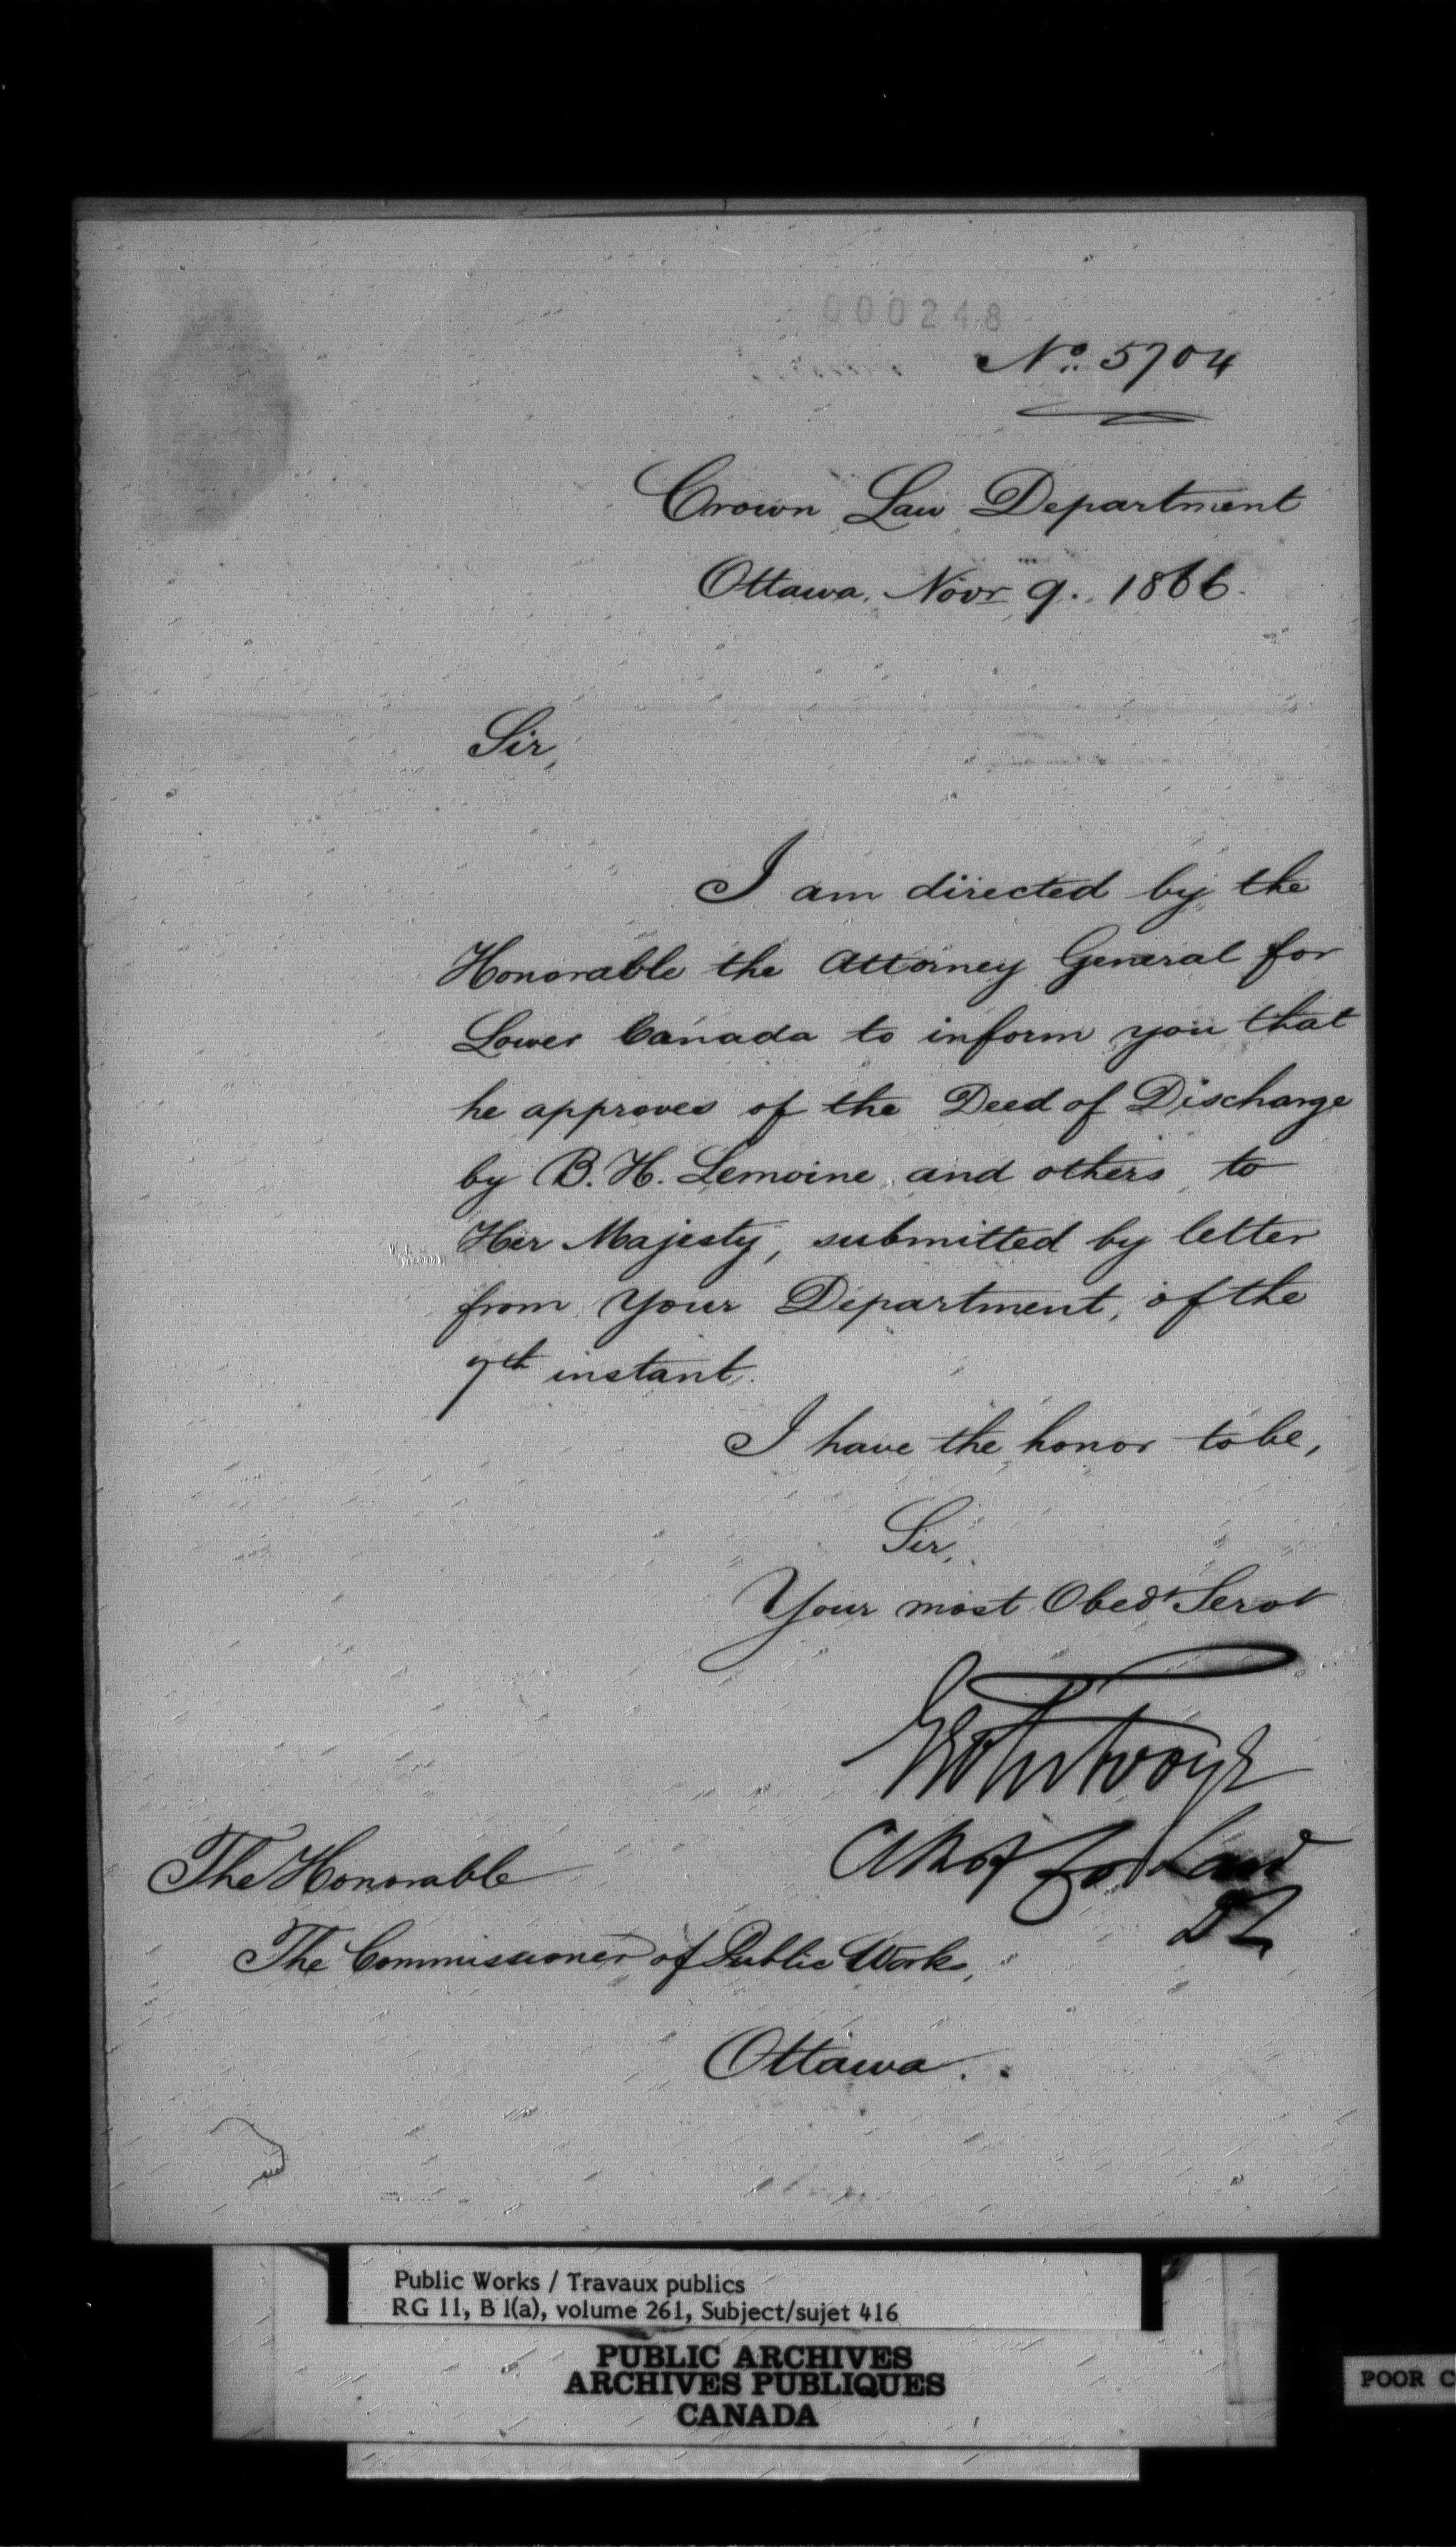 000248
No. 5704
Crown Law Department
Ottawa, Novr 9. 1866.
Sir,
I am directed by the
Honorable the Attorney General for
Lower Canada to inform you that
he approves of the Deed of Discharge
by B. H. Lemoine, and others, to
Her Majesty, submitted by letter
from Your Department, of the
7th instant.
I have the honor to be,
Sir,
Your most Obedt Servt
Law
The Honorable
The Commissioner of Public Works,
Ottawa.
Public Works / Travaux publics
RG 11, B 1(a), volume 261, Subject/sujet 416
PUBLIC ARCHIVES
ARCHIVES PUBLIQUES
CANADA
POOR C